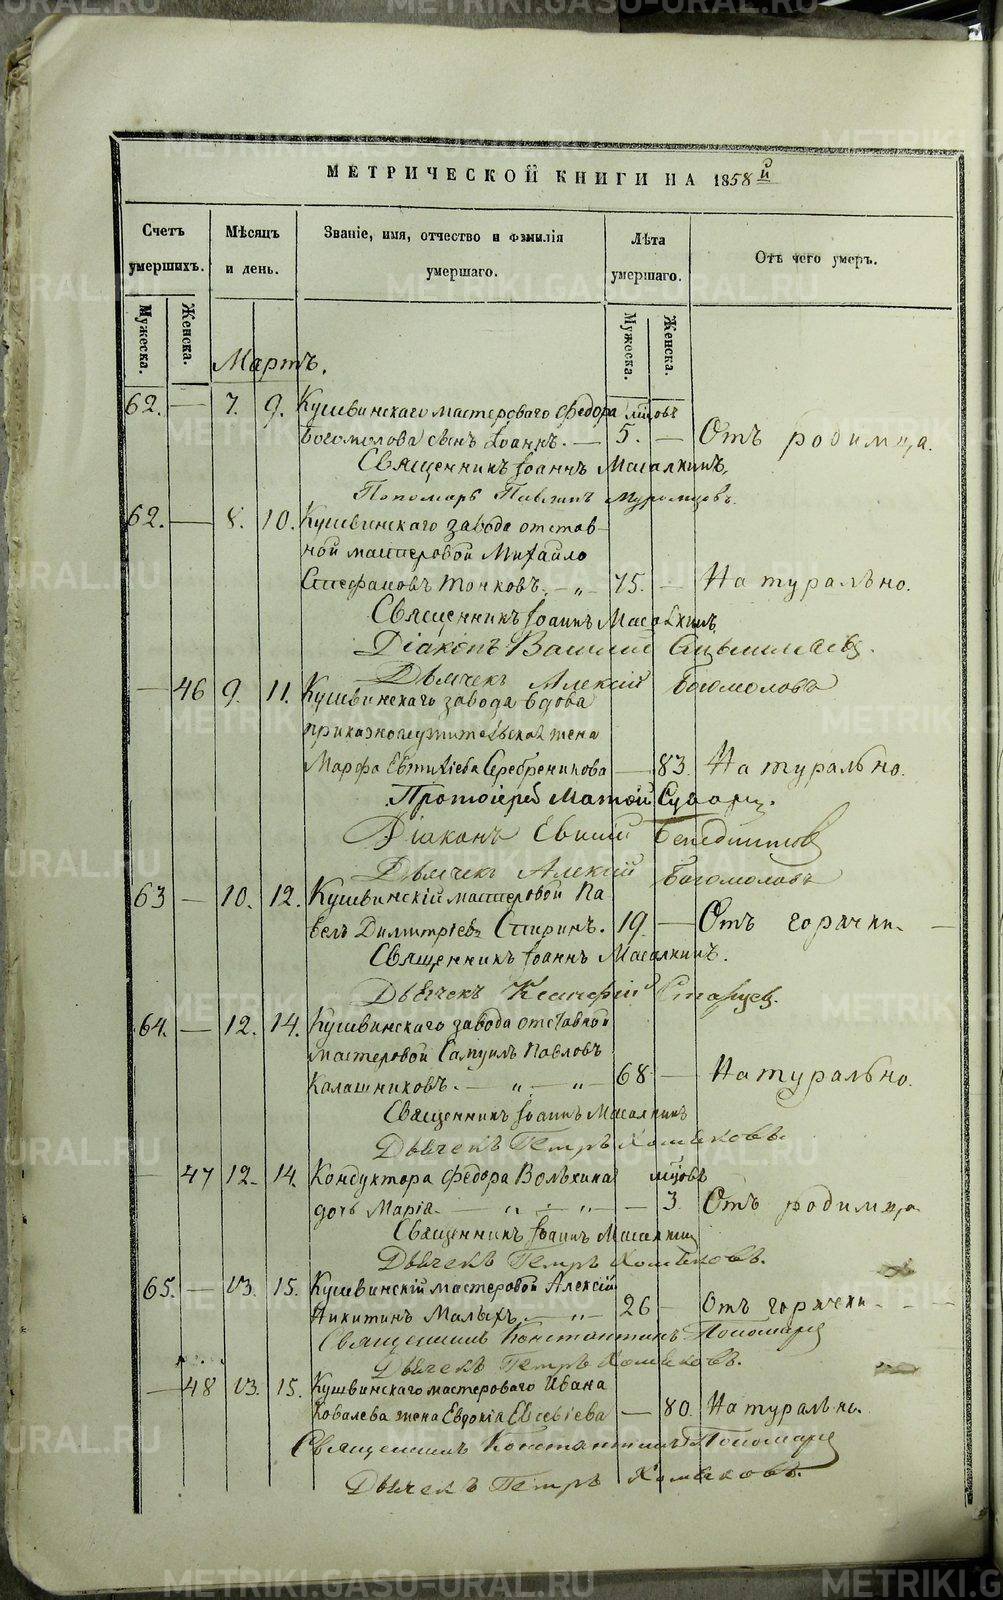 МЕТРИЧЕСКОЙ КНИГИ НА 1858й
Счетъ умершихъ.
Мужеска.
Женска.
Мѣсяцъ и день.
Званіе, имя, отчество и фамилія умершаго.
Лѣта умершаго.
Мужеска.
Женска.
Отъ чего умеръ.
Мартъ.
62. — 7. 9. Кушвинскаго мастероваго Федора мцовъ
Богомолова сынъ Іоаннъ. — 5. — Отъ родимца.
Священникъ Іоаннъ Масалкинъ.
Пономарь Павлинъ Муромцовъ.
62. — 8. 10. Кушвинскаго завода отстав-
ной мастеровой Михайло
Стефановъ Точковъ. — „ — 75. — Натурально.
Священникъ Іоаннъ Масалкинъ
Діаконъ Василий
Дьячекъ Алексій Богомоловъ
— 46 9. 11. Кушвинскаго завода вдова
приказнослужительская жена
Марфа Евтихіева Серебреникова — 83. Натурально.
Протоіерей Матѳій
Діаконъ Евгеній Бенедиктовъ
Дьячекъ Алексій Богомоловъ
63 — 10. 12. Кушвинскій мастеровой Па
велъ Димитріевъ Спиринъ. 19. — Отъ горячки. —
Священникъ Іоаннъ Масалкинъ.
Дьячекъ Старцев.
64. — 12. 14. Кушвинскаго завода отставной
мастеровой Самуилъ Павловъ
Калашниковъ. — „ — „ — 68 — Натурально.
Священникъ Іоаннъ Масалкинъ
Дьячекъ Петръ Хомяковъ.
— 47 12. 14. Кондуктора Федора Волкина мцовъ
дочь Марія. — „ — „ — — 3. Отъ родимца
Священникъ Іоаннъ Масалкинъ
Дьячекъ Петръ Хомяковъ.
65. — 13. 15. Кушвинскій мастеровой Алексій
Никитинъ Малыхъ. — „ — 26 — Отъ горячки - - -
Священникъ Константинъ Пономарев
Дьячекъ Петръ Хомяковъ.
— 48 13. 15. Кушвинскаго мастероваго Ивана
Ковалева жена Евдокія Евсевіева — 80. Натурально.
Священникъ Константинъ Пономарев
Дьячекъ Петръ Хомяковъ.
METRIKI.GASO-URAL.RU